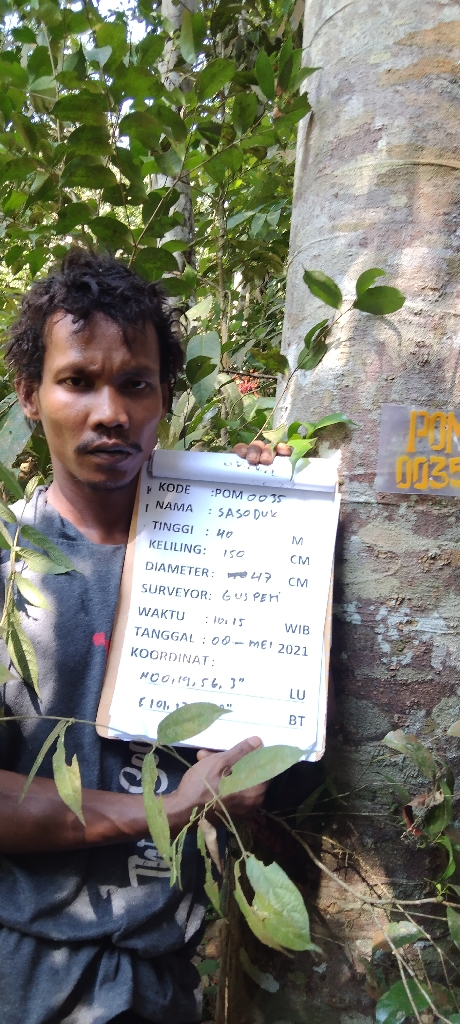 KODE :POM 0035
NAMA : SASODUK
TINGGI : 40 M
KELILING: 150 CM
DIAMETER: 47 CM
SURVEYOR: GUSPETI
WAKTU : 10.15 WIB
TANGGAL : 00 - MEI 2021
KOORDINAT:
N00.19.56.3" LU
BT
POM
0035